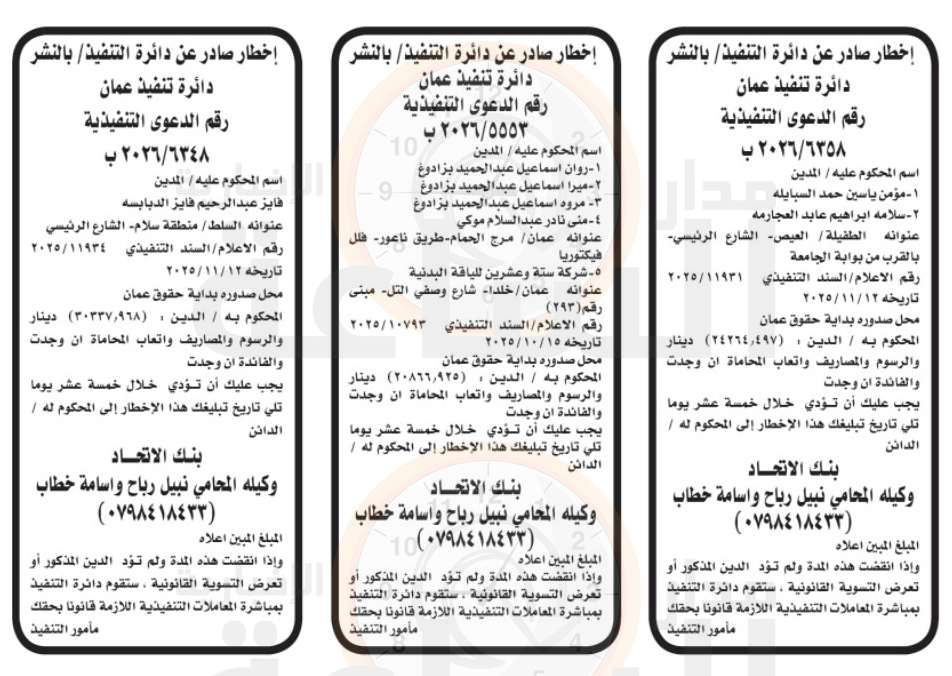 إخطار صادر عن دائرة التنفيذ/ بالنشر
دائرة تنفيذ عمان
رقم الدعوى التنفيذية
٢٠٢٦/٦٣٥٨ ب
اسم المحكوم عليه / المدين
١-مؤمن ياسين حمد السبايله
٢-سلامه ابراهيم عابد العجارمه
عنوانه الطفيلة/ العيص- الشارع الرئيسي-
بالقرب من بوابة الجامعة
رقم الاعلام/السند التنفيذي ٢٠٢٥/١١٩٣١
تاريخه ٢٠٢٥/١١/١٢
محل صدوره بداية حقوق عمان
المحكوم به / الدين : (٢٤٢٦٤,٤٩٧) دينار
والرسوم والمصاريف واتعاب المحاماة ان وجدت
والفائدة ان وجدت
يجب عليك أن تؤدي خلال خمسة عشر يوما
تلي تاريخ تبليغك هذا الإخطار إلى المحكوم له /
الدائن
بنك الاتحاد
وكيله المحامي نبيل رباح واسامة خطاب
(٠٧٩٨٤١٨٤٣٣)
المبلغ المبين اعلاه
وإذا انقضت هذه المدة ولم تؤد الدين المذكور أو
تعرض التسوية القانونية ، ستقوم دائرة التنفيذ
بمباشرة المعاملات التنفيذية اللازمة قانونا بحقك
مأمور التنفيذ
إخطار صادر عن دائرة التنفيذ/ بالنشر
دائرة تنفيذ عمان
رقم الدعوى التنفيذية
٢٠٢٦/٥٥٥٣ ب
اسم المحكوم عليه / المدين
١-روان اسماعيل عبدالحميد بزادوغ
٢-ميرا اسماعيل عبدالحميد بزادوغ
٣- مروه اسماعيل عبدالحميد بزادوغ
٤-منى نادر عبدالسلام موكي
عنوانه عمان/ مرج الحمام-طريق ناعور- فلل
فيكتوريا
٥-شركة ستة وعشرين للياقة البدنية
عنوانه عمان/خلدا- شارع وصفي التل- مبنى
رقم(٢٩٣)
رقم الاعلام/السند التنفيذي ٢٠٢٥/١٠٧٩٣
تاريخه ٢٠٢٥/١٠/١٥
محل صدوره بداية حقوق عمان
المحكوم به / الدين : (٢٠٨٦٦,٩٢٥) دينار
والرسوم والمصاريف واتعاب المحاماة ان وجدت
والفائدة ان وجدت
يجب عليك أن تؤدي خلال خمسة عشر يوما
تلي تاريخ تبليغك هذا الإخطار إلى المحكوم له /
الدائن
بنك الاتحاد
وكيله المحامي نبيل رباح واسامة خطاب
(٠٧٩٨٤١٨٤٣٣)
المبلغ المبين اعلاه
وإذا انقضت هذه المدة ولم تؤد الدين المذكور أو
تعرض التسوية القانونية ، ستقوم دائرة التنفيذ
بمباشرة المعاملات التنفيذية اللازمة قانونا بحقك
مأمور التنفيذ
إخطار صادر عن دائرة التنفيذ/ بالنشر
دائرة تنفيذ عمان
رقم الدعوى التنفيذية
٢٠٢٦/٦٣٤٨ ب
اسم المحكوم عليه / المدين
فايز عبدالرحيم فايز الدبابسه
عنوانه السلط/ منطقة سلام- الشارع الرئيسي
رقم الاعلام/السند التنفيذي ٢٠٢٥/١١٩٣٤
تاريخه ٢٠٢٥/١١/١٢
محل صدوره بداية حقوق عمان
المحكوم به / الدين : (٣٠٣٣٧,٩٦٨) دينار
والرسوم والمصاريف واتعاب المحاماة ان وجدت
والفائدة ان وجدت
يجب عليك أن تؤدي خلال خمسة عشر يوما
تلي تاريخ تبليغك هذا الإخطار إلى المحكوم له /
الدائن
بنك الاتحاد
وكيله المحامي نبيل رباح واسامة خطاب
(٠٧٩٨٤١٨٤٣٣)
المبلغ المبين اعلاه
وإذا انقضت هذه المدة ولم تؤد الدين المذكور أو
تعرض التسوية القانونية ، ستقوم دائرة التنفيذ
بمباشرة المعاملات التنفيذية اللازمة قانونا بحقك
مأمور التنفيذ